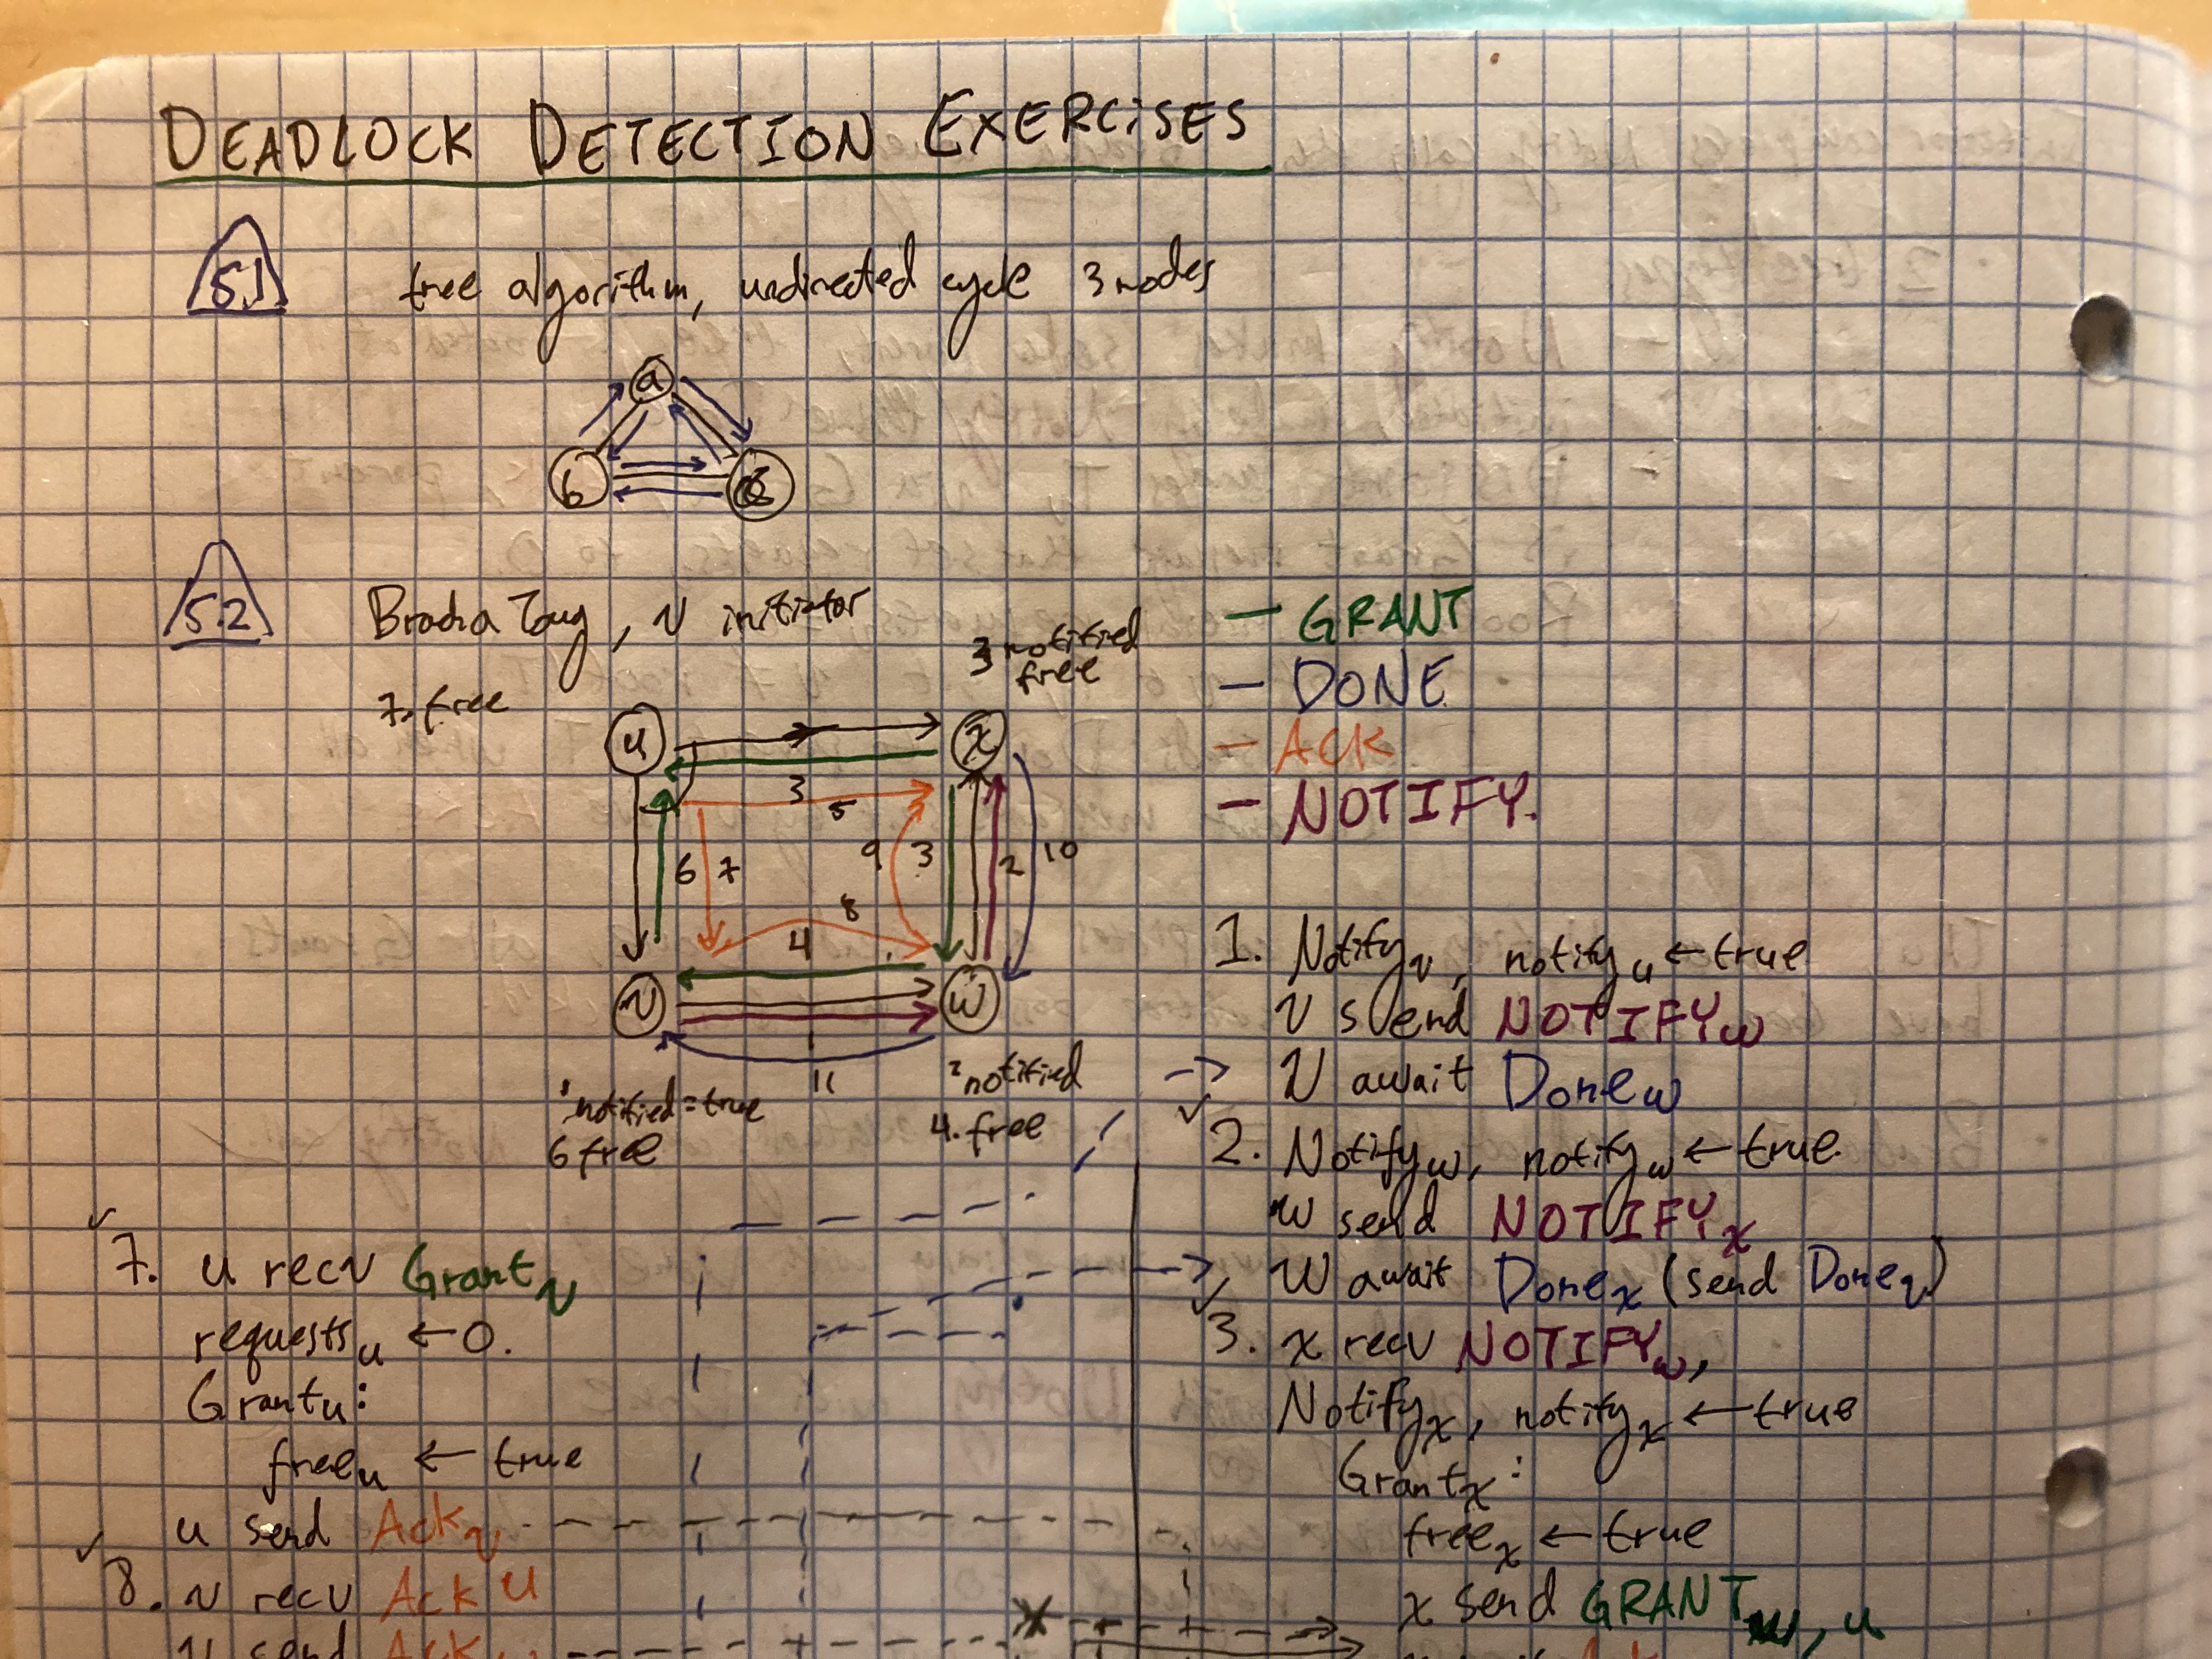 DEADLOCK DETECTION EXERCISES
5.1 tree algorithm, undirected cycle 3 nodes
a
b
5.2 Bracha Toug, v initiator
7. free
3 notified
free
u
x
3
5
6 7
9 3 2 10
8
4
v
w
1
11
1 notified = true
6 free
2 notified
4. free
— GRANT
— DONE
— ACK
— NOTIFY.
1. Notify v, notify u ← true
v send NOTIFY w
v await Done w
2. Notify w, notify w ← true.
w send NOTIFY x
w await Done x (send Done v)
3. x recv NOTIFY w,
Notify x, notify x ← true
Grant x :
free x ← true
x send GRANT w, u
7. u recv Grant v
requests u ← 0.
Grant u:
free u ← true
u send Ack v
8. v recv Ack u
v send Ack